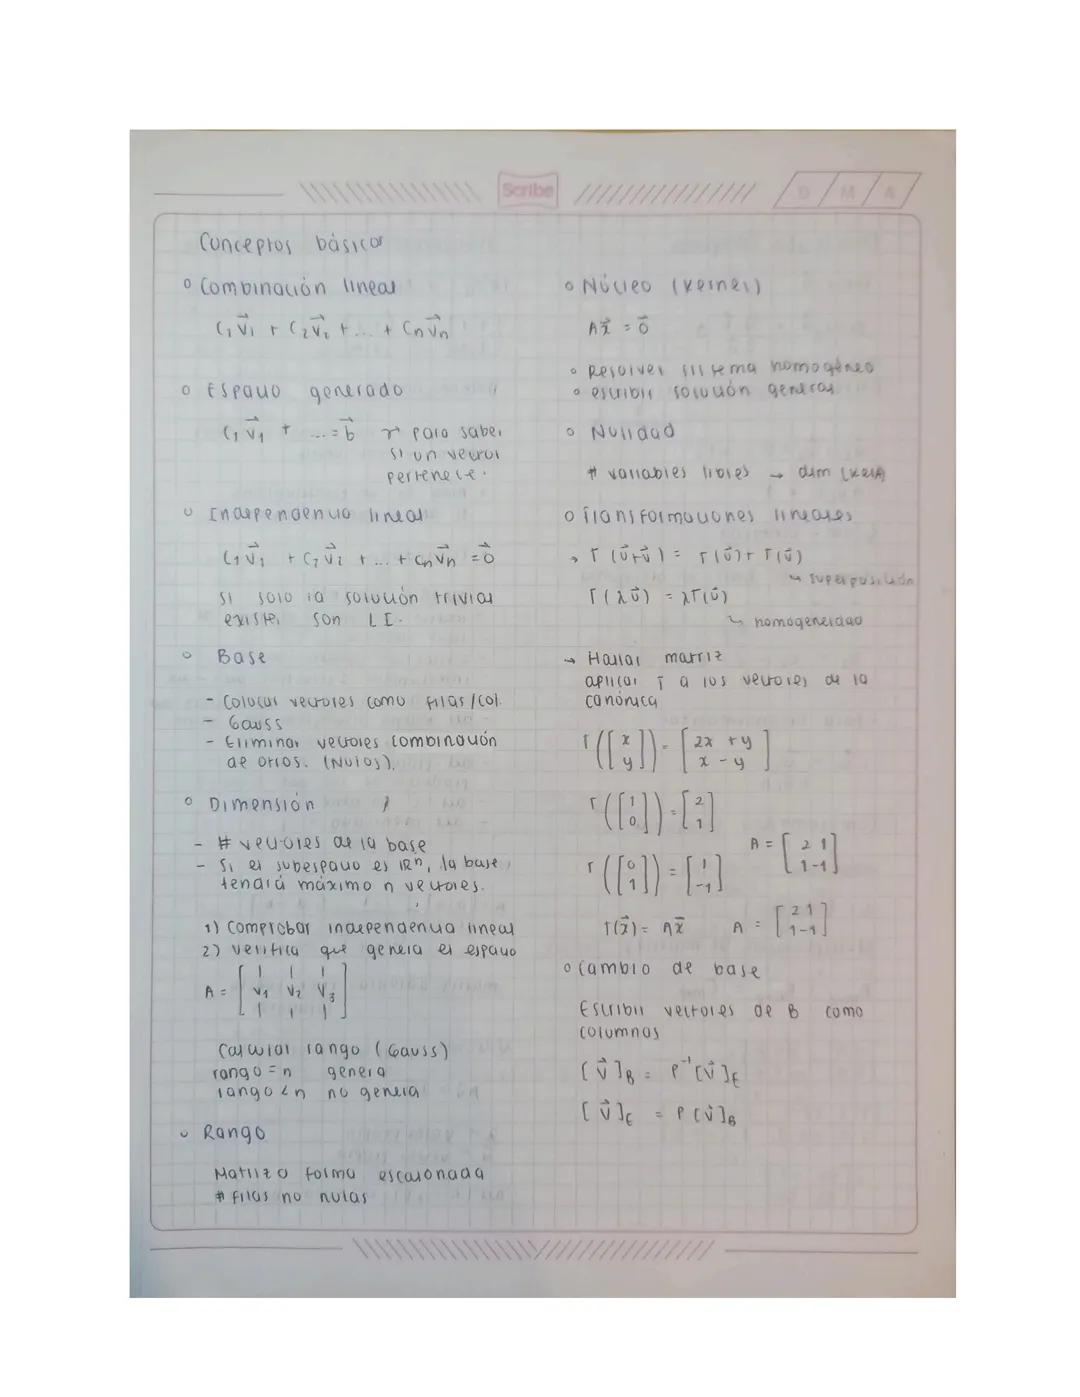 Scribe
D M A
Conceptos básicos
o Combinación lineal
C₁v⃗₁ + C₂v⃗₂ + ... + Cₙv⃗ₙ
o Espacio generado
C₁v⃗₁ + ... = b⃗ → para saber
si un vector
pertenece.
o Independencia lineal
C₁v⃗₁ + C₂v⃗₂ + ... + Cₙv⃗ₙ = 0⃗
si solo la solución trivial
existe, son LI.
o Base
- Colocar vectores como filas/col.
- Gauss
- Eliminar vectores combinación
de otros. (Nulos).
o Dimensión
- # vectores de la base
- Si el subespacio es ℝⁿ, la base
tendrá máximo n vectores.
1) Comprobar independencia lineal
2) verifica que genera el espacio
A = [v₁ v₂ v₃]
Calcular rango (Gauss)
rango = n genera
rango < n no genera
o Rango
Matriz a forma escalonada
# filas no nulas
o Núcleo (kernel)
Ax⃗ = 0⃗
o Resolver sistema homogéneo
o escribir solución general
o Nulidad
# variables libres → dim (kerA)
o Transformaciones lineales
→ T(u⃗+v⃗) = T(u⃗) + T(v⃗)
↳ superposición
T(λu⃗) = λT(u⃗)
↳ homogeneidad
→ Hallar matriz
aplicar T a los vectores de la
canónica
T([x y]) = [2x + y x - y]
T([1 0]) = [2 1]
A = [2 1 1 -1]
T([0 1]) = [1 -1]
T(x⃗) = Ax⃗ A = [2 1 1 -1]
o Cambio de base
Escribir vectores de B como
columnas
[v⃗]B = P⁻¹[v⃗]E
[v⃗]E = P[v⃗]B